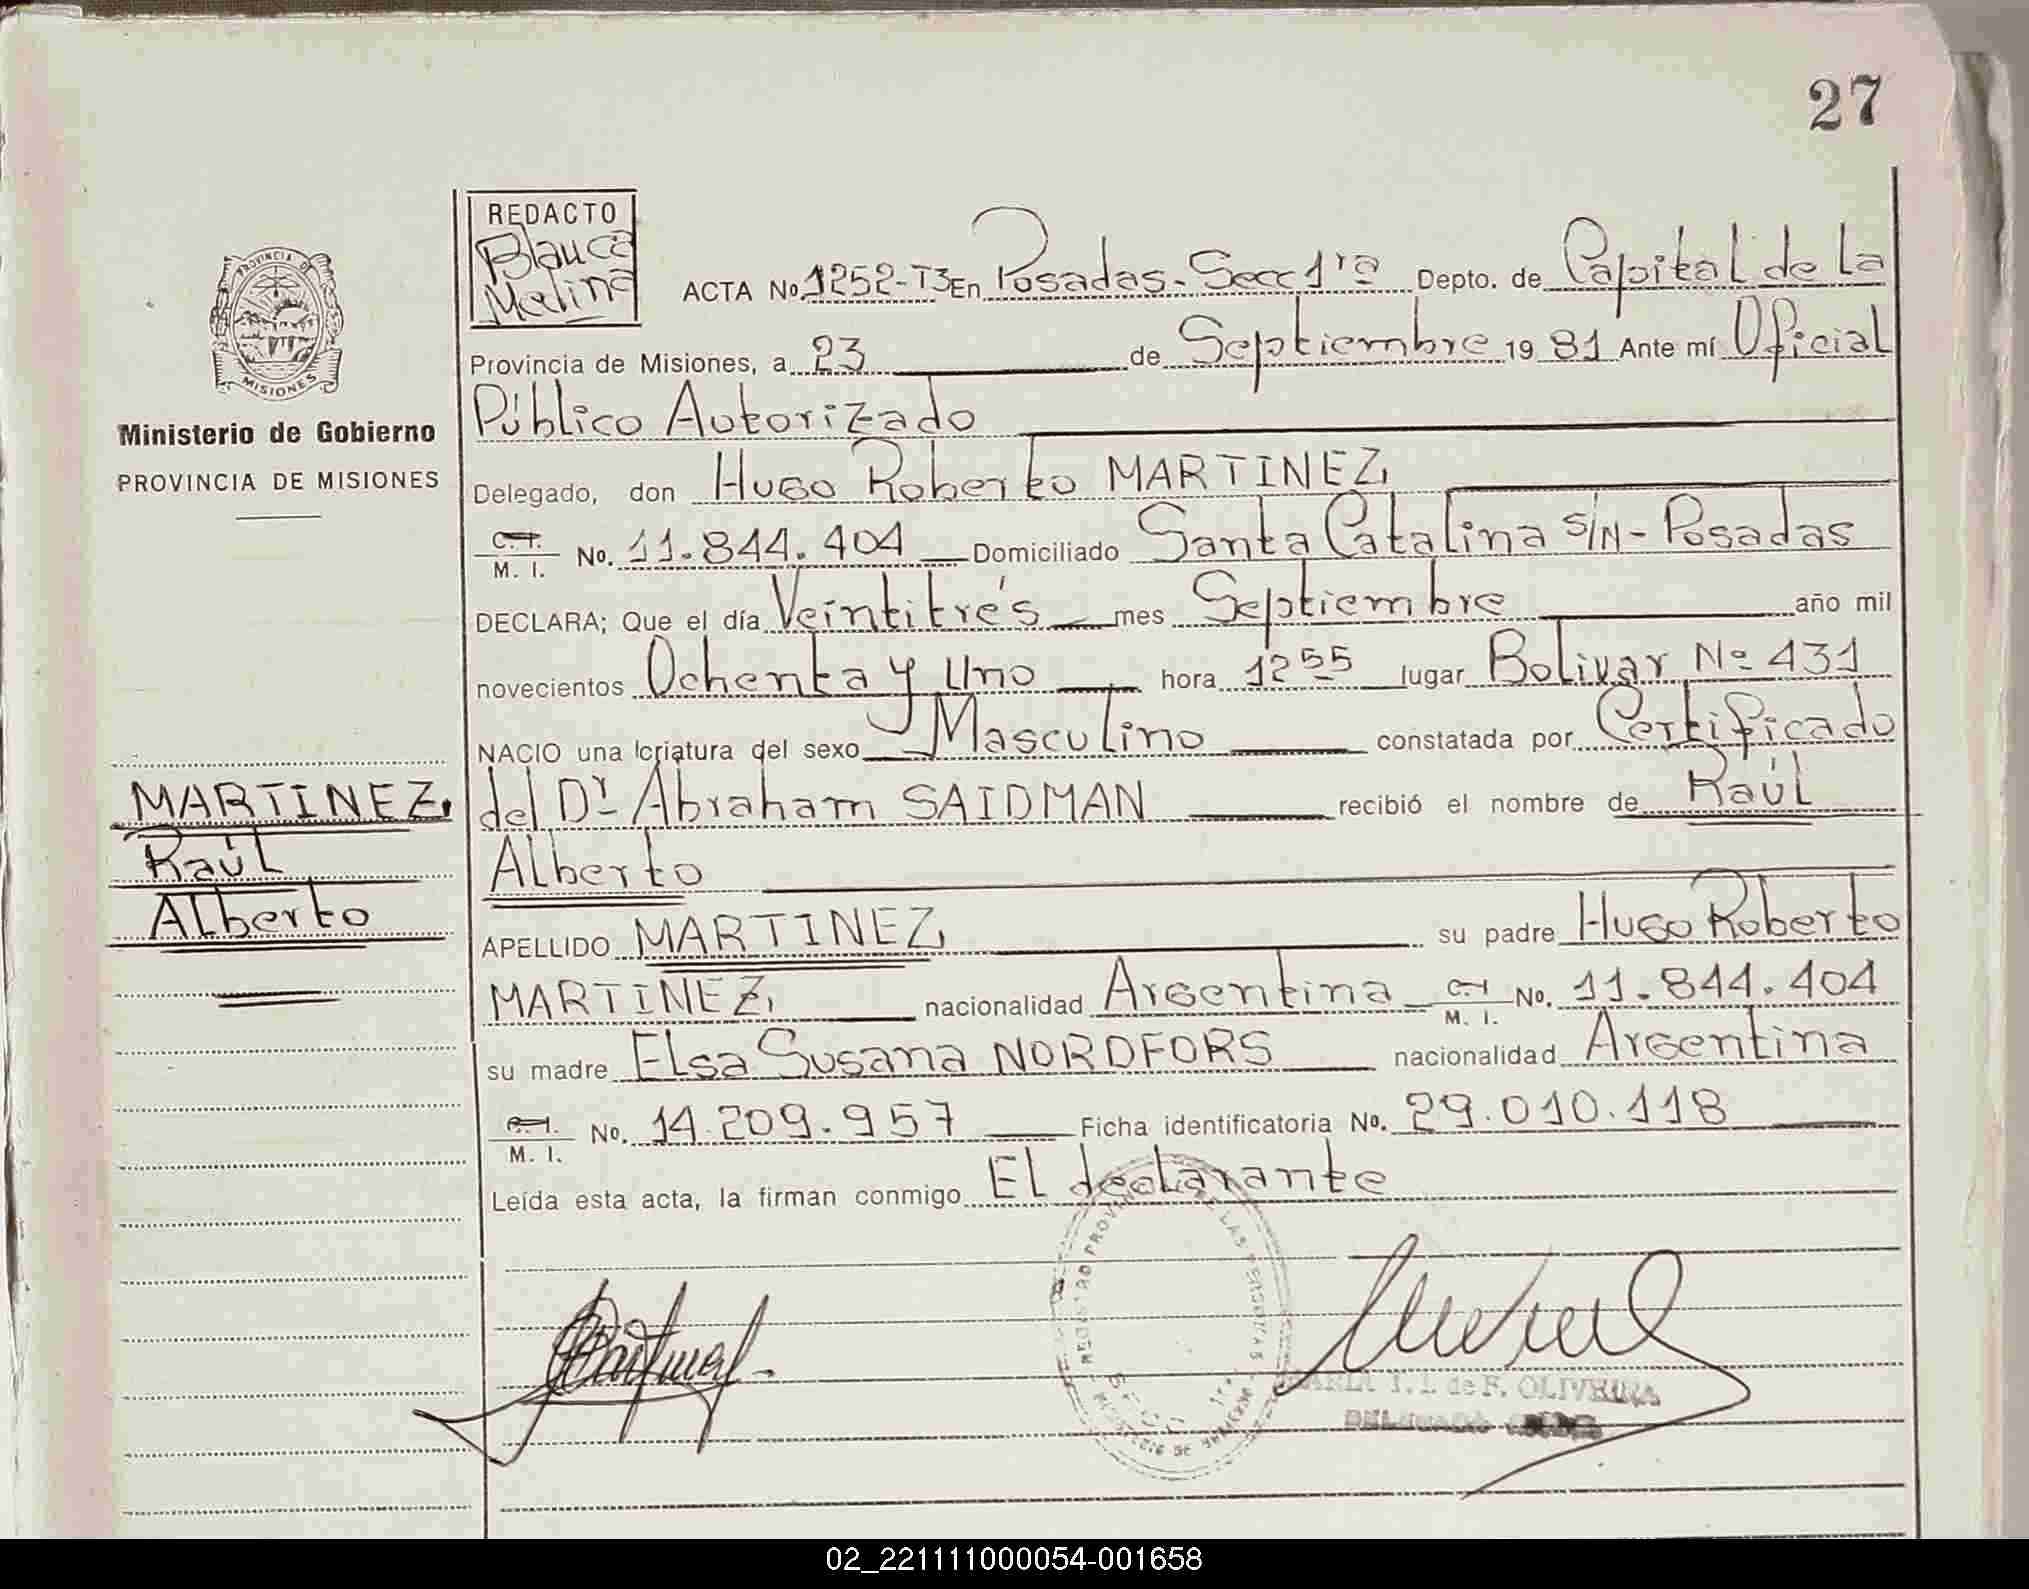 27
REDACTO
Blanca
Melina
PROVINCIA DE
MISIONES
Ministerio de Gobierno
PROVINCIA DE MISIONES
ACTA No. 1252-T3 En Posadas-Secc 1ra Depto. de Capital de la
Provincia de Misiones, a 23 de Septiembre 19 81 Ante mí Oficial
Público Autorizado
Delegado, don Hugo Roberto MARTINEZ,
C. I. M. I. No. 11.844.404 Domiciliado Santa Catalina S/N - Posadas
DECLARA; Que el día Veintitrés mes Septiembre año mil
novecientos Ochenta y Uno hora 12 55 lugar Bolivar Nº 431
NACIO una criatura del sexo Masculino constatada por Certificado
del Dr Abraham SAIDMAN recibió el nombre de Raúl
Alberto
APELLIDO MARTINEZ, su padre Hugo Roberto
MARTINEZ, nacionalidad Argentina C. I. M. I. No. 11.844.404
su madre Elsa Susana NORDFORS nacionalidad Argentina
C. I. M. I. No. 14.209.957 Ficha identificatoria No. 29.010.118
Leída esta acta, la firman conmigo El declarante
MARTINEZ,
Raúl
Alberto
REGISTRO PROVINCIAL DE LAS PERSONAS
MARIA I. I. de F. OLIVEIRA
DELEGADO
02_221111000054-001658